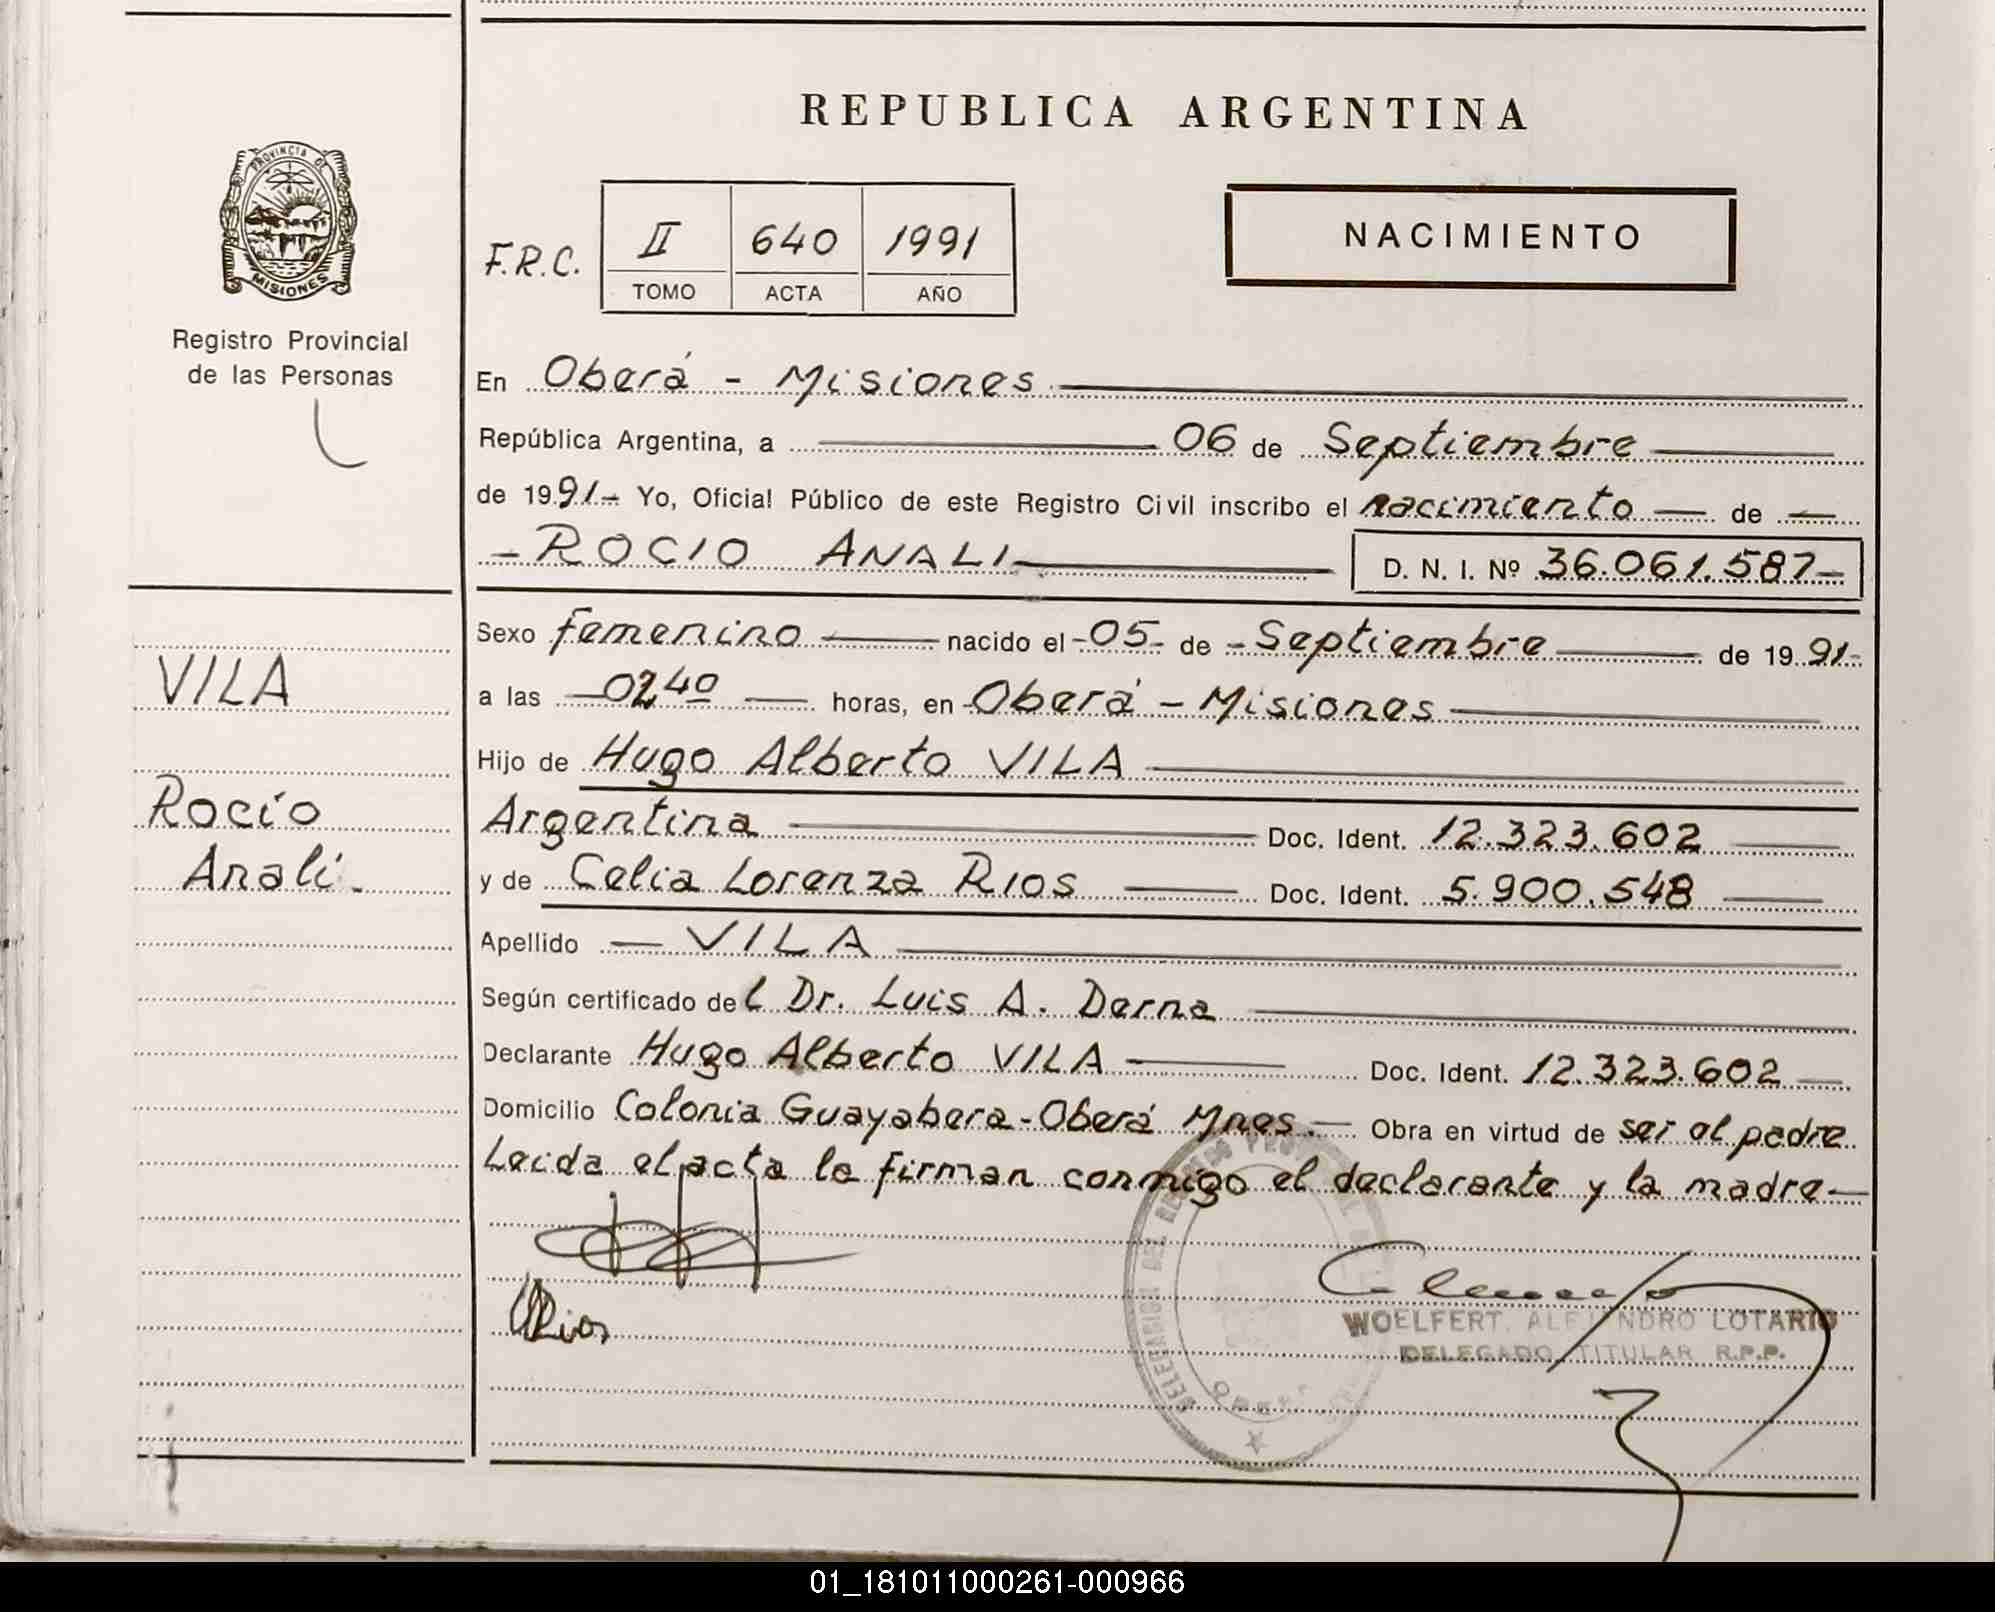 REPUBLICA ARGENTINA
PROVINCIA DE
MISIONES
Registro Provincial
de las Personas
F.R.C.
II 640 1991
TOMO ACTA AÑO
NACIMIENTO
En Oberá - Misiones
República Argentina, a 06 de Septiembre
de 1991.- Yo, Oficial Público de este Registro Civil inscribo el nacimiento — de —
- ROCIO ANALI D. N. I. Nº 36.061.587-
Sexo femenino nacido el -05- de -Septiembre de 1991-
a las 02⁴⁰ horas, en Oberá - Misiones
Hijo de Hugo Alberto VILA
Argentina Doc. Ident. 12.323.602
y de Celia Lorenza RIOS Doc. Ident. 5.900.548
Apellido — VILA
Según certificado del Dr. Luis A. Derna
Declarante Hugo Alberto VILA Doc. Ident. 12.323.602
Domicilio Colonia Guayabera-Oberá Mnes.- Obra en virtud de ser el padre
Leida el acta la firman conmigo el declarante y la madre-
VILA
Rocío
Analí.
Rios
WOELFERT, ALEJANDRO LOTARIO
DELEGADO TITULAR R.P.P.
01_181011000261-000966